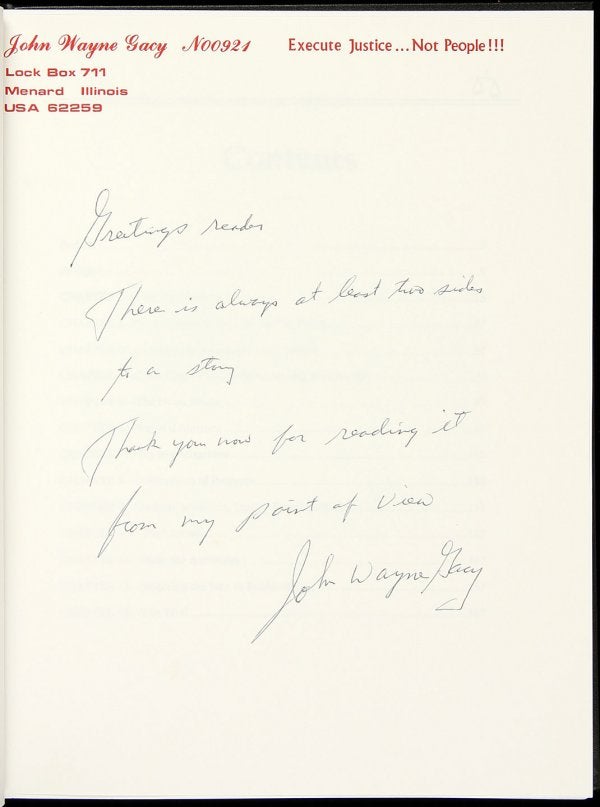 John Wayne Gacy N00921 Execute Justice...Not People!!!
Lock Box 711
Menard Illinois
USA 62259
Contents
Greetings reader
There is always at least two sides
to a story
Thank you now for reading it
from my point of view
John Wayne Gacy